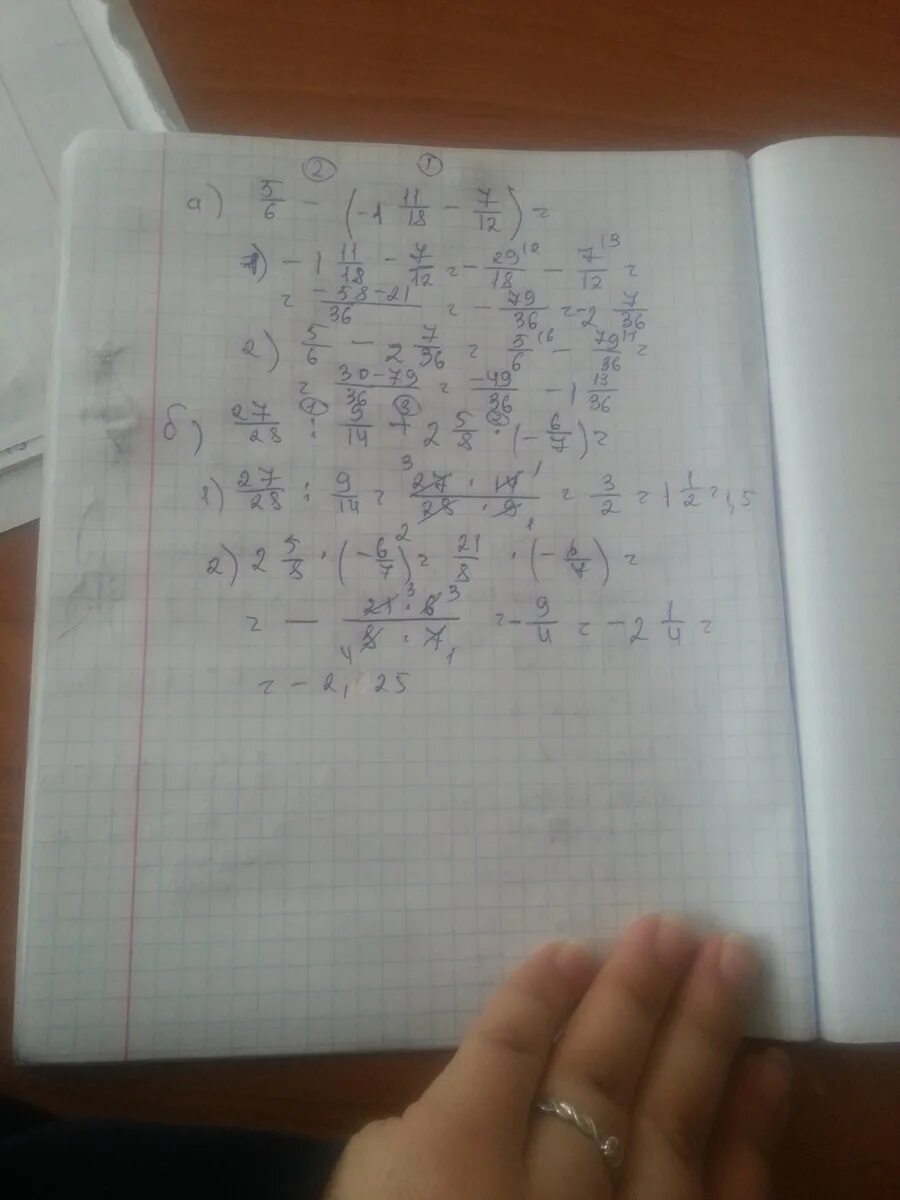 ② ①
а) 5/6 - (-1 11/18 - 7/12) =
1) -1 11/18 - 7/12 = - 29/18 |2 - 7/12 |3 =
= -58-21/36 = - 79/36 = -2 7/36
2) 5/6 - 2 7/36 = 5/6 |6 - 79/36 |1 =
= 30-79/36 = -49/36 -1 13/36
① ③ ②
б) 27/28 : 9/14 + 2 5/8 · (-6/7) =
1) 27/28 : 9/14 = 3 27 · 14 1/28 · 9 2 1 = 3/2 = 1 1/2 = 1,5
2) 2 5/8 · (-6/7) = 21/8 · (-6/7) =
= - 21 3 · 6 3/4 8 · 7 1 = - 9/4 = -2 1/4 =
= -2,25